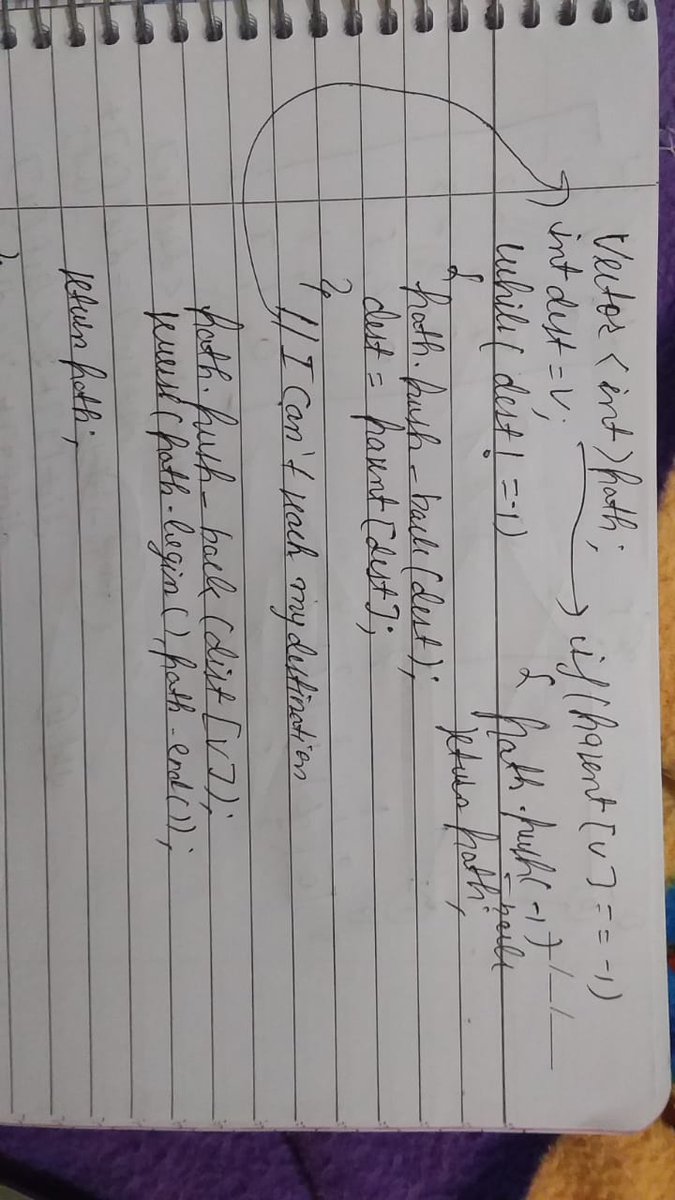 Vector<int>path;
if(parent[v]==-1)
{ path.push_back(-1)
return path;
int dest=v;
while(dest!=-1)
{
path.push_back(dest);
dest = parent[dest];
}
// I Can't reach my destination
path.push_back(dist[v]);
reverse(path.begin(), path.end());
return path;